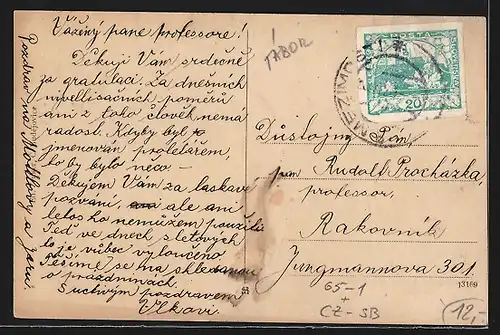 Vážený pane professore!
Děkuji Vám srdečně
za gratulaci. Za dnešních
nivellisačních poměrů
ani z toho člověk nemá
radost. Kdyby byl
jmenován proletářem,
to by bylo něco –
Děkujem Vám za laskavé
pozvání, ale ani
letos ho nemůžem použíti
Teď ve dnech sletových
to je vůbec vyloučeno
Těšíme se na shledanou
o prázdninách.
S uctivým pozdravem
Vlkovi
Pozdrav na
a
TÁBOR
POŠTA
20
MEZIMO
Důstojný Pán,
pan Rudolf Procházka,
professor,
Rakovník
Jungmannova 301.
13169
65-1
+
CZ-SB
12,-